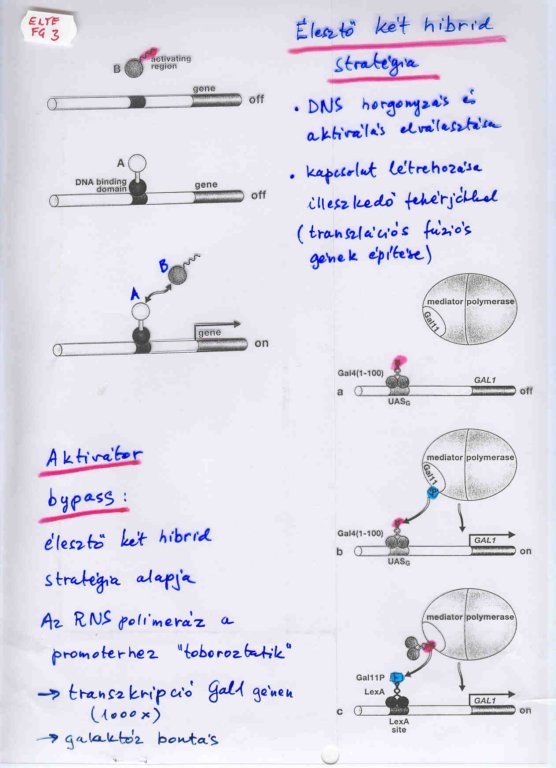 ELTE
FG 3
Élesztő két hibrid
stratégia
• DNS horgonyzás és
aktiválás elválasztása
• kapcsolat létrehozása
illeszkedő fehérjékkel
(transzlációs fúziós
gének építése)
B
activating
region
gene
off
A
DNA binding
domain
gene
off
B
A
gene
on
mediator
polymerase
Gal11
Gal4(1-100)
GAL1
a
off
UASG
mediator
polymerase
Gal11
Gal4(1-100)
GAL1
b
on
UASG
mediator
polymerase
Gal11P
LexA
GAL1
c
on
LexA
site
Aktivátor
bypass:
élesztő két hibrid
stratégia alapja
Az RNS polimeráz a
promoterhez "toboroztatik"
→ transzkripció Gal1 génen
(1000x)
→ galaktóz bontás